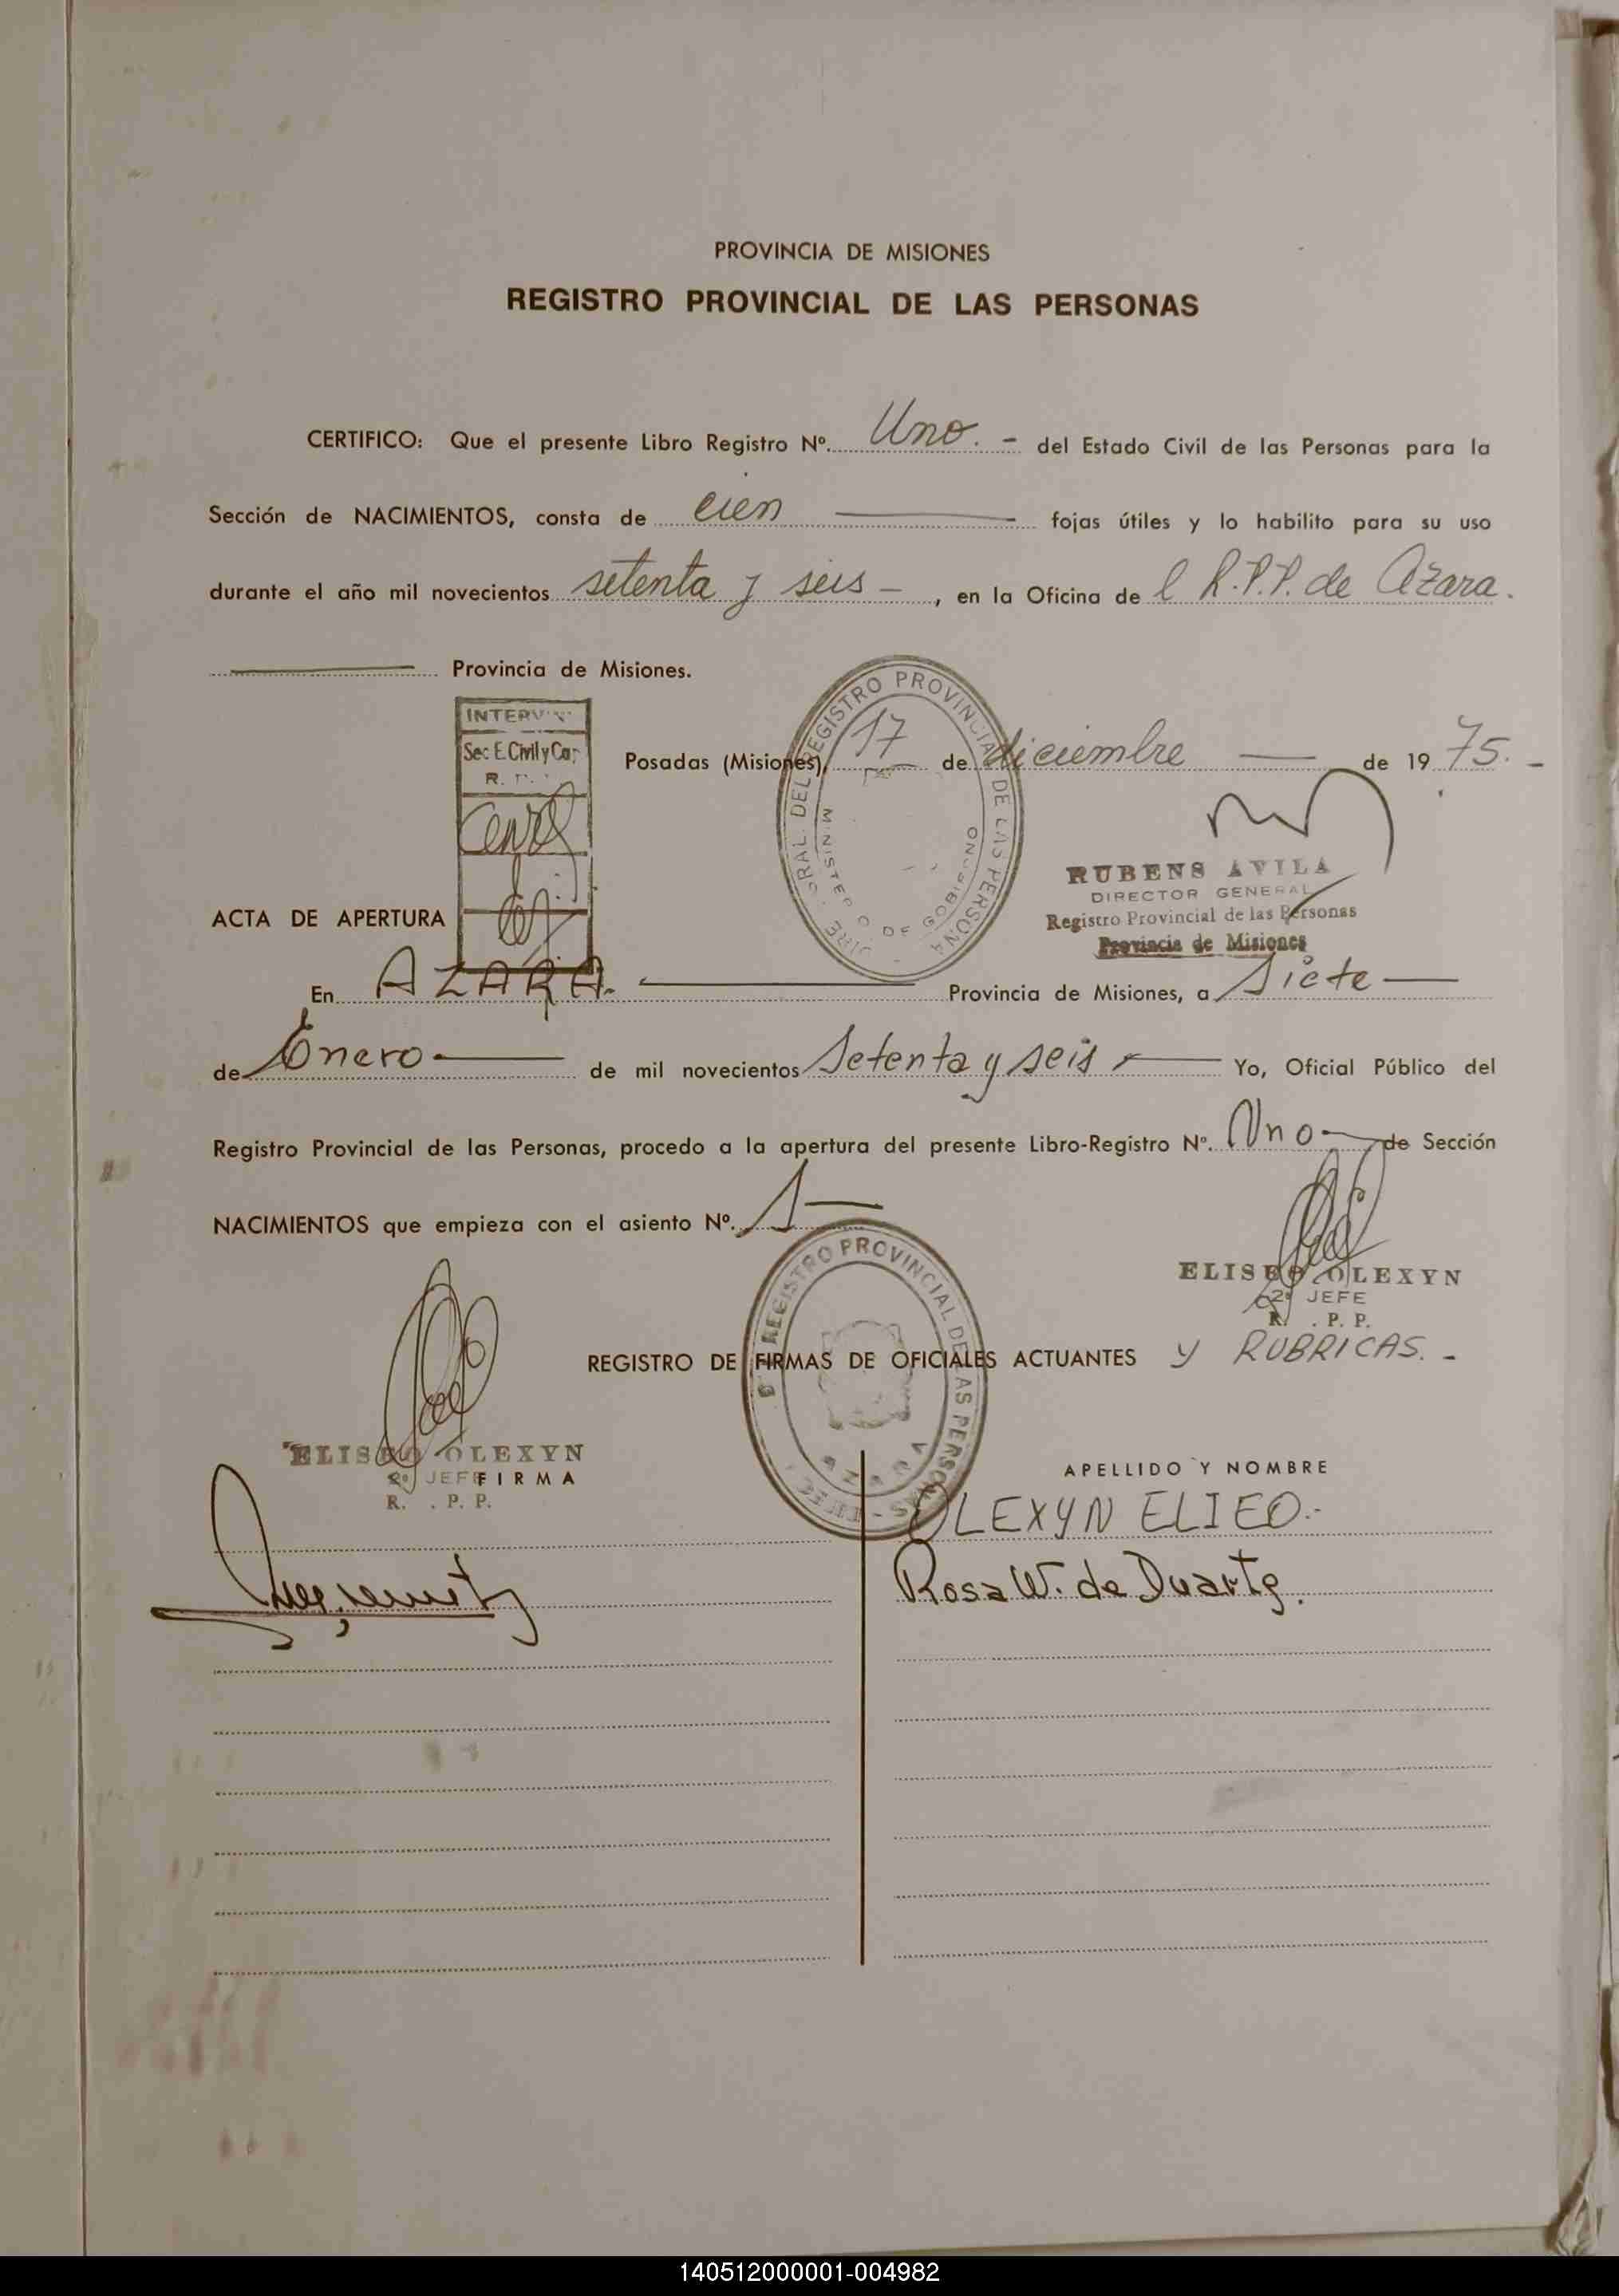 PROVINCIA DE MISIONES
REGISTRO PROVINCIAL DE LAS PERSONAS
CERTIFICO: Que el presente Libro Registro Nº. Uno. - del Estado Civil de las Personas para la
Sección de NACIMIENTOS, consta de cien fojas útiles y lo habilito para su uso
durante el año mil novecientos setenta y seis - , en la Oficina de l R.P.P. de Azara.
Provincia de Misiones.
INTERV
Sec E. Civil y Cap
R.
Posadas (Misiones), 17 de diciembre de 19 75. -
REGISTRO PROVINCIAL DE LAS PERSONAS
MINISTERIO DE GOBIERNO
RUBENS AVILA
DIRECTOR GENERAL
Registro Provincial de las Personas
Provincia de Misiones
ACTA DE APERTURA
En AZARA. Provincia de Misiones, a Siete
de Enero de mil novecientos Setenta y seis Yo, Oficial Público del
Registro Provincial de las Personas, procedo a la apertura del presente Libro-Registro Nº. Uno de Sección
NACIMIENTOS que empieza con el asiento Nº. 1
ELISEO OLEXYN
2º JEFE
R. . P. P.
REGISTRO PROVINCIAL DE LAS PERSONAS
AZARA
REGISTRO DE FIRMAS DE OFICIALES ACTUANTES y RUBRICAS. -
ELISEO OLEXYN
2º JEFE
R. . P. P.
FIRMA
APELLIDO Y NOMBRE
OLEXYN ELIEO.-
Rosa W. de Duarte.
140512000001-004982